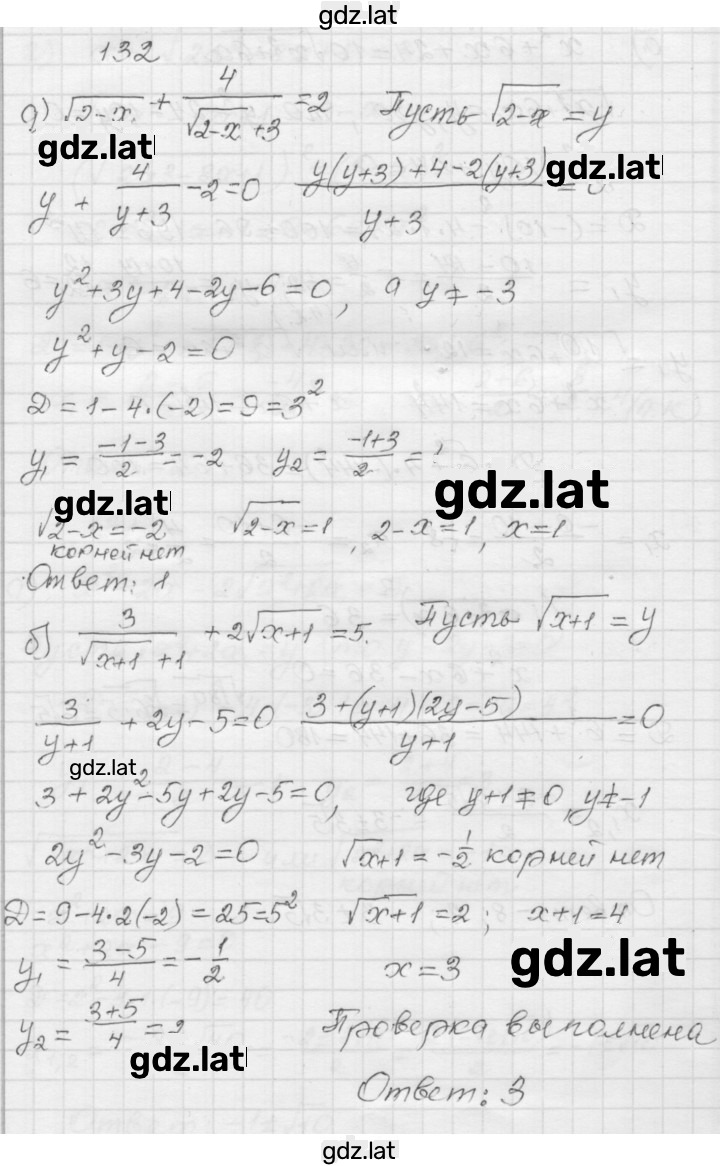 gdz.lat
132
а) √2-x + 4/(√2-x + 3) = 2 Пусть √2-x = y
gdz.lat gdz.lat
y + 4/(y+3) - 2 = 0 (y(y+3)+4-2(y+3))/(y+3) =
y²+3y+4-2y-6=0, а y≠-3
y²+y-2=0
D=1-4·(-2)=9=3²
y₁ = (-1-3)/2 = -2 y₂ = (-1+3)/2 =
gdz.lat gdz.lat
√2-x = -2, √2-x = 1, 2-x=1, x=1
корней нет
Ответ: 1
б) 3/(√x+1 + 1) + 2√x+1 = 5. Пусть √x+1 = y
3/(y+1) + 2y-5=0 (3+(y+1)(2y-5))/(y+1) = 0
gdz.lat
3+2y²-5y+2y-5=0, где y+1≠0, y≠-1
2y²-3y-2=0 √x+1 = -1/2 корней нет
D=9-4·2(-2)=25=5² √x+1 = 2; x+1=4
y₁ = (3-5)/4 = -1/2 x=3 gdz.lat
y₂ = (3+5)/4 = 2 Проверка выполнена
gdz.lat
Ответ: 3
gdz.lat